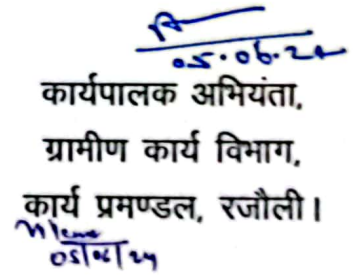 05.06.24
कार्यपालक अभियंता,
ग्रामीण कार्य विभाग,
कार्य प्रमण्डल, रजौली।
05/06/24